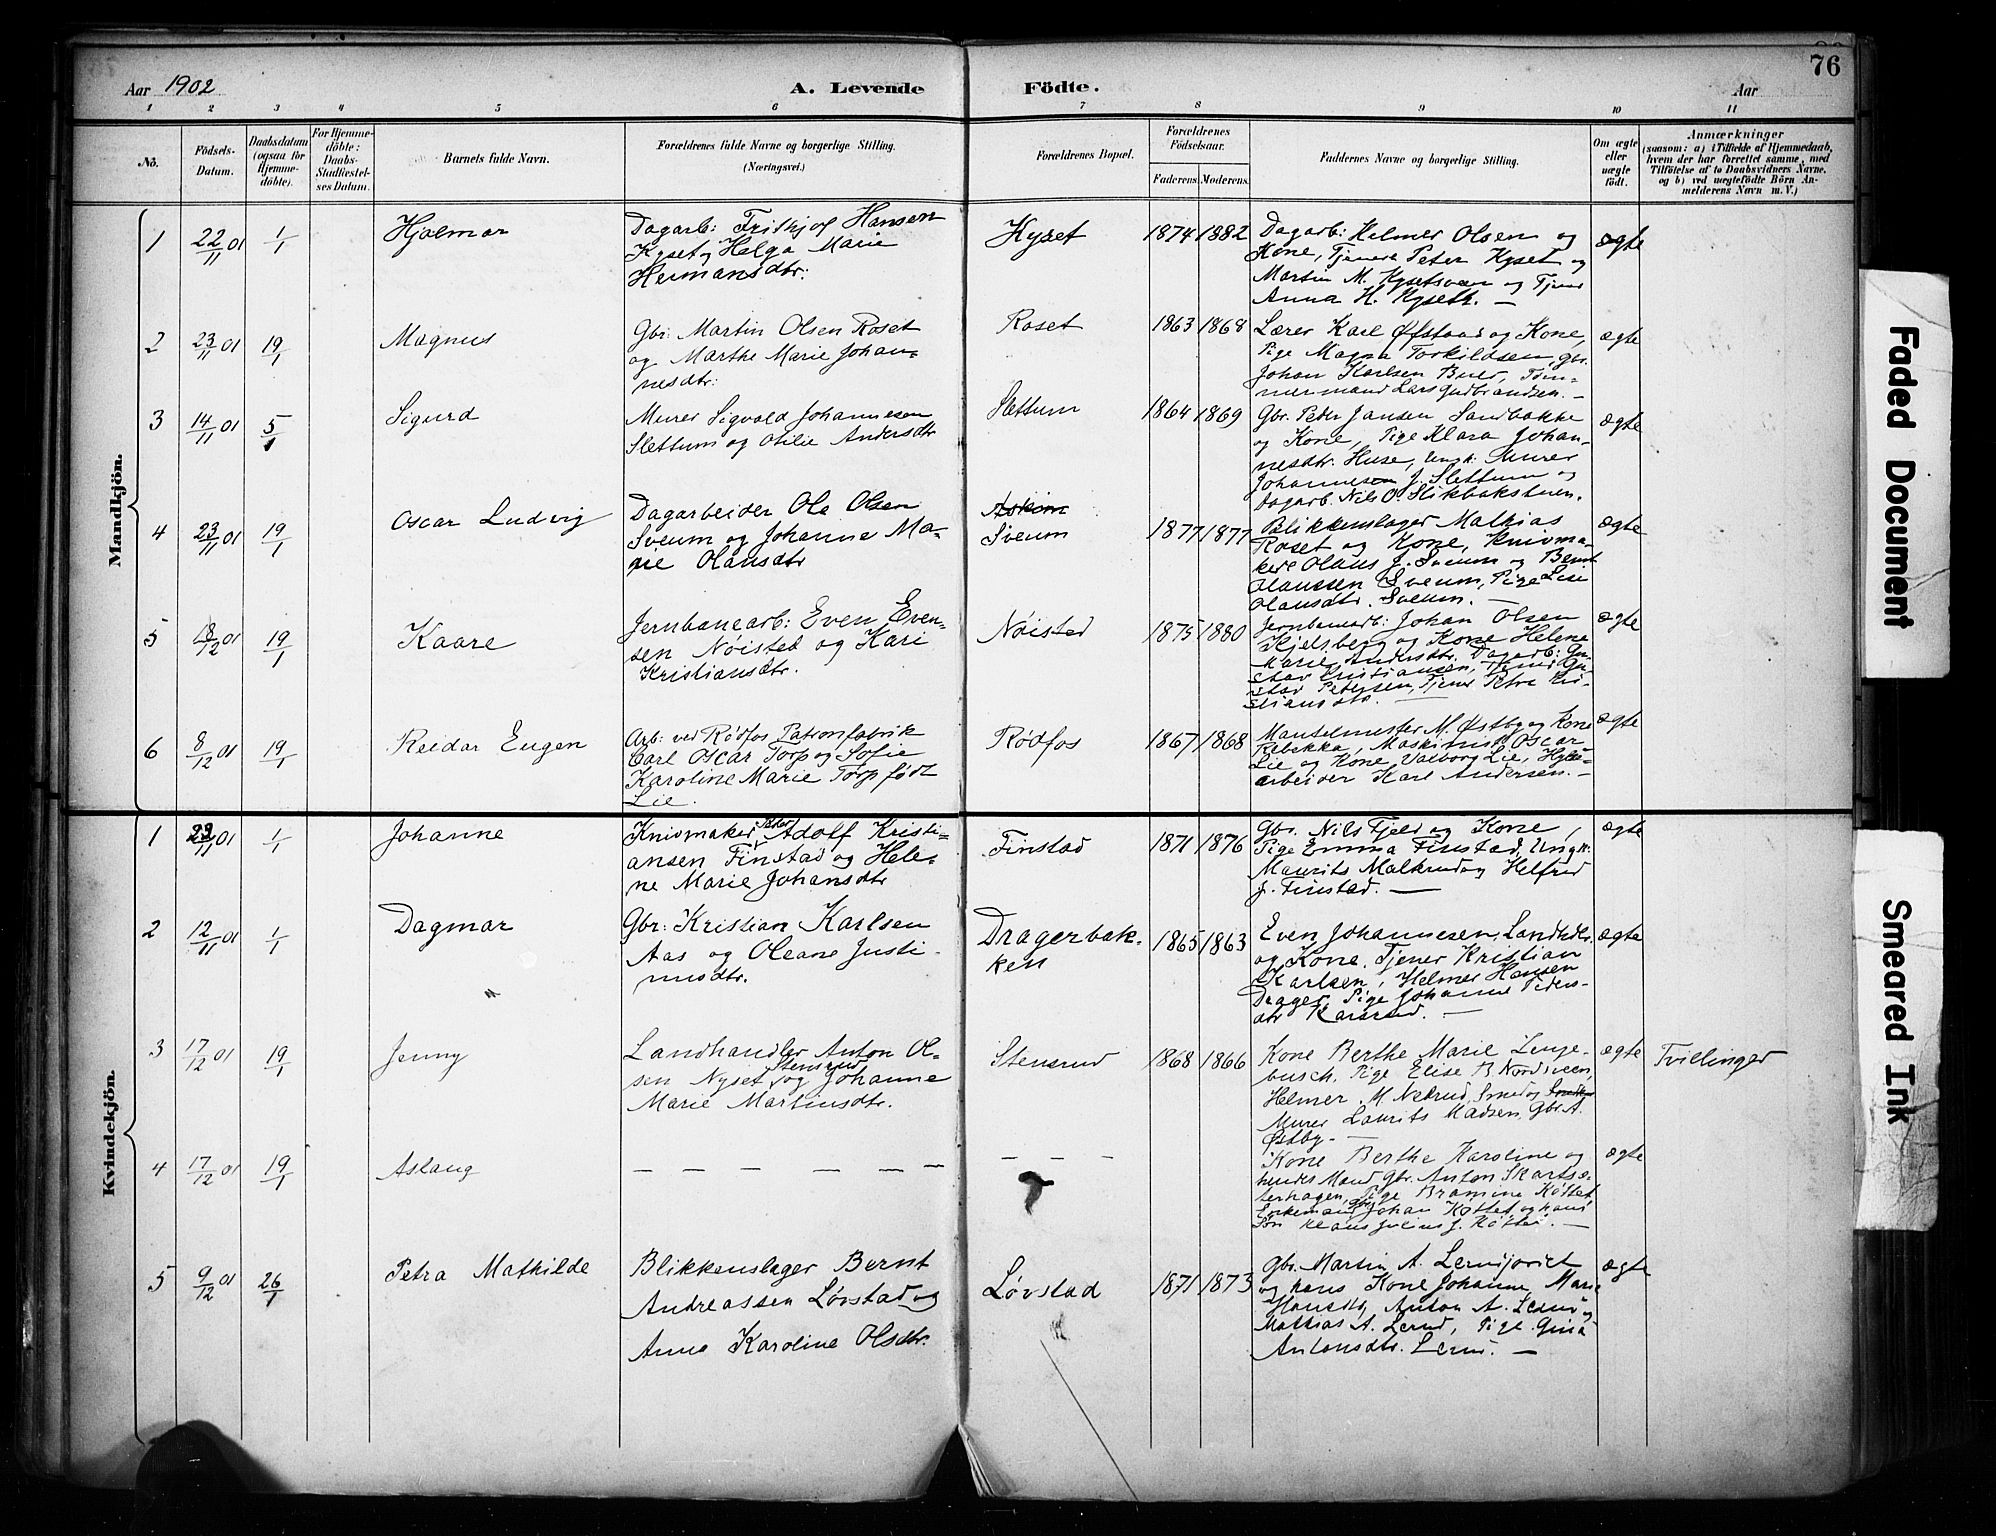 76
Aar 1902
A. Levende
Födte.
Aar
1 2 3 4 5 6 7 8 9 10 11
No.
Födsels-
Datum.
Daabsdatum
(ogsaa for
Hjemme-
döbte).
For Hjemme-
döbte:
Daabs-
Stadfæstel-
ses Datum.
Barnets fulde Navn.
Forældrenes fulde Navne og borgerlige Stilling.
(Næringsvei.)
Forældrenes Bopæl.
Forældrenes
Födselsaar.
Faderens. Moderens.
Faddernes Navne og borgerlige Stilling.
Om ægte
eller
uægte
födt.
Anmærkninger
(saasom: a) i Tilfælde af Hjemmedaab,
hvem der har forrettet samme, med
Tilföielse af to Daabsvidners Navne,
og b) ved uægtefödte Börn An-
melderens Navn m. V.)
Mandkjön.
1 22/11 01 1/1 Hjalmar
Dagarb: Frithjof Hansen
Kyset og Helga Marie
Hermansdtr:
Kyset 1874 1882
Dagarb: Helmer Olsen og
Kone, Tjener Peter Kyset og
Martin M. Kysetsveen og Tjener
Anna H. Kyseth. —
ægte
2 23/11 01 19/1 Magnus
Gbr: Martin Olsen Roset
og Marthe Marie Johan-
nesdtr:
Roset 1863 1868
Lærer Karl Øfstaas og Kone,
Pige Magna Torkildsen, gbr.
Johan Karlsen Buer, Töm-
mermand Lars Gudbrandsen. —
ægte
3 14/11 01 5/1 Sigurd
Murer Sigvald Johannesen
Slettum og Otilie Andersdtr
Slettum 1864 1869
Gbr. Peder Jansen Sandbakke
og Kone, Pige Klara Johan-
nesdtr. Huse, Ungk: Murer
Johannesen J. Slettum og
Dagarb. Nils O. Slikbakstuen.
ægte
4 23/11 01 19/1 Oscar Ludvig
Dagarbeider Ole Olsen
Sveum og Johanne Ma-
rie Olausdtr
Askim
Sveum 1877 1877
Blikkenslager Mathias
Roset og Kone, Knivma-
kere Olaus J. Sveum og Bernt
Olaussen Sveum, Pige Lise
Olausdtr. Sveum. —
ægte
5 18/12 01 19/1 Kaare
Jernbanearb: Even Even-
sen Nøisted og Kari
Kristiansdtr.
Nøisted 1875 1880
Jernbanearb: Johan Olsen
Kjelsberg og Kone Helene
Marie Andersdtr. Dagarb: Gu-
stav Kristiansen, Tjener Gu-
stav Petersen, Tjener Petra Kri-
stiansdtr. —
ægte
6 8/12 01 19/1 Reidar Eugen
Arb: ved Rødfos Patronfabrik
Carl Oscar Torp og Sofie
Karoline Marie Torp født
Lie.
Rødfos 1867 1868
M. Østby og Kone
Rebekka, Oscar
Lie og Kone Valborg Lie,
arbeider Karl Andersen. —
ægte
Kvindekjön.
1 23/11 01 1/1 Johanne
Knivmaker Peder Adolf Kristi-
ansen Finstad og Hele-
ne Marie Johansdtr
Finstad 1871 1876
Gbr. Nils Fjeld og Kone,
Pige Emma Finstad, Ungk:
Maurits Malkrud og Helfred
J. Finstad. —
ægte
2 12/11 01 1/1 Dagmar
Gbr: Kristian Karlsen
Aas og Oleane Justi-
nusdtr.
Dragerbak-
ken 1865 1863
Even Johannesen, Landhdlr.
og Kone, Tjener Kristian
Karlsen, Helmer Hansen
Drager, Pige Johanne Peders-
dtr Karsrud. —
ægte
3 17/12 01 19/1 Jenny
Landhandler Anton Ol-
sen Nyset Stensrud og Johanne
Marie Martinsdtr.
Stensrud 1868 1866
Kone Berthe Marie Lenge-
busch, Pige Elise B Nordsveen,
Helmer M. Nekrud, Smed og
Murer Laurits Madsen, Gbr A.
Østby. —
ægte Tvillinger
4 17/12 01 19/1 Aslaug
— — — — — —
— — —
Kone Berthe Karoline og
hendes Mand Gbr. Anton Skartsæ-
terhagen, Pige Bramine Køttet,
Enkemand Gbr. Johan Køttet og hans
Søn Klaus Julius J. Køttet. —
ægte
5 9/12 01 26/1 Petra Mathilde
Blikkenslager Bernt
Andreassen Løvstad og
Anne Karoline Olsdtr.
Løvstad 1871 1873
Gbr. Martin A.
og hans Kone Johanne Marie
Hansdtr, Anton A. Lerud og
Mathias A. Lerud, Pige Gina
Antonsdtr. Lerud. —
ægte
Faded Document
Smeared Ink